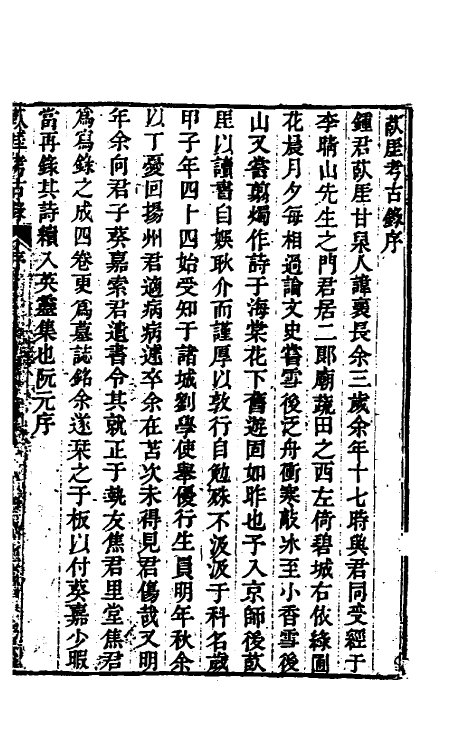 菣厓考古錄序
鍾君菣厓甘泉人諱襄長余三歲余年十七時與君同受經于
李晴山先生之門君居二郎廟蔬田之西左倚碧城右依綠圃
花晨月夕每相過論文史嘗雪後泛舟衝寒敲冰至小香雪後
山又嘗剪燭作詩于海棠花下舊遊固如昨也予入京師後菣
厓以讀書自娛耿介而謹厚以敦行自勉殊不汲汲于科名歲
甲子年四十四始受知于諸城劉學使舉優行生員明年秋余
以丁憂回揚州君適病病遽卒余在苫次未得見君傷哉又明
年余向君子葵嘉索君遺書令其就正于執友焦君里堂焦君
爲寫錄之成四卷更爲墓誌銘余遂栞之于板以付葵嘉少暇
當再錄其詩續入英靈集也阮元序
菣厓考古錄 序